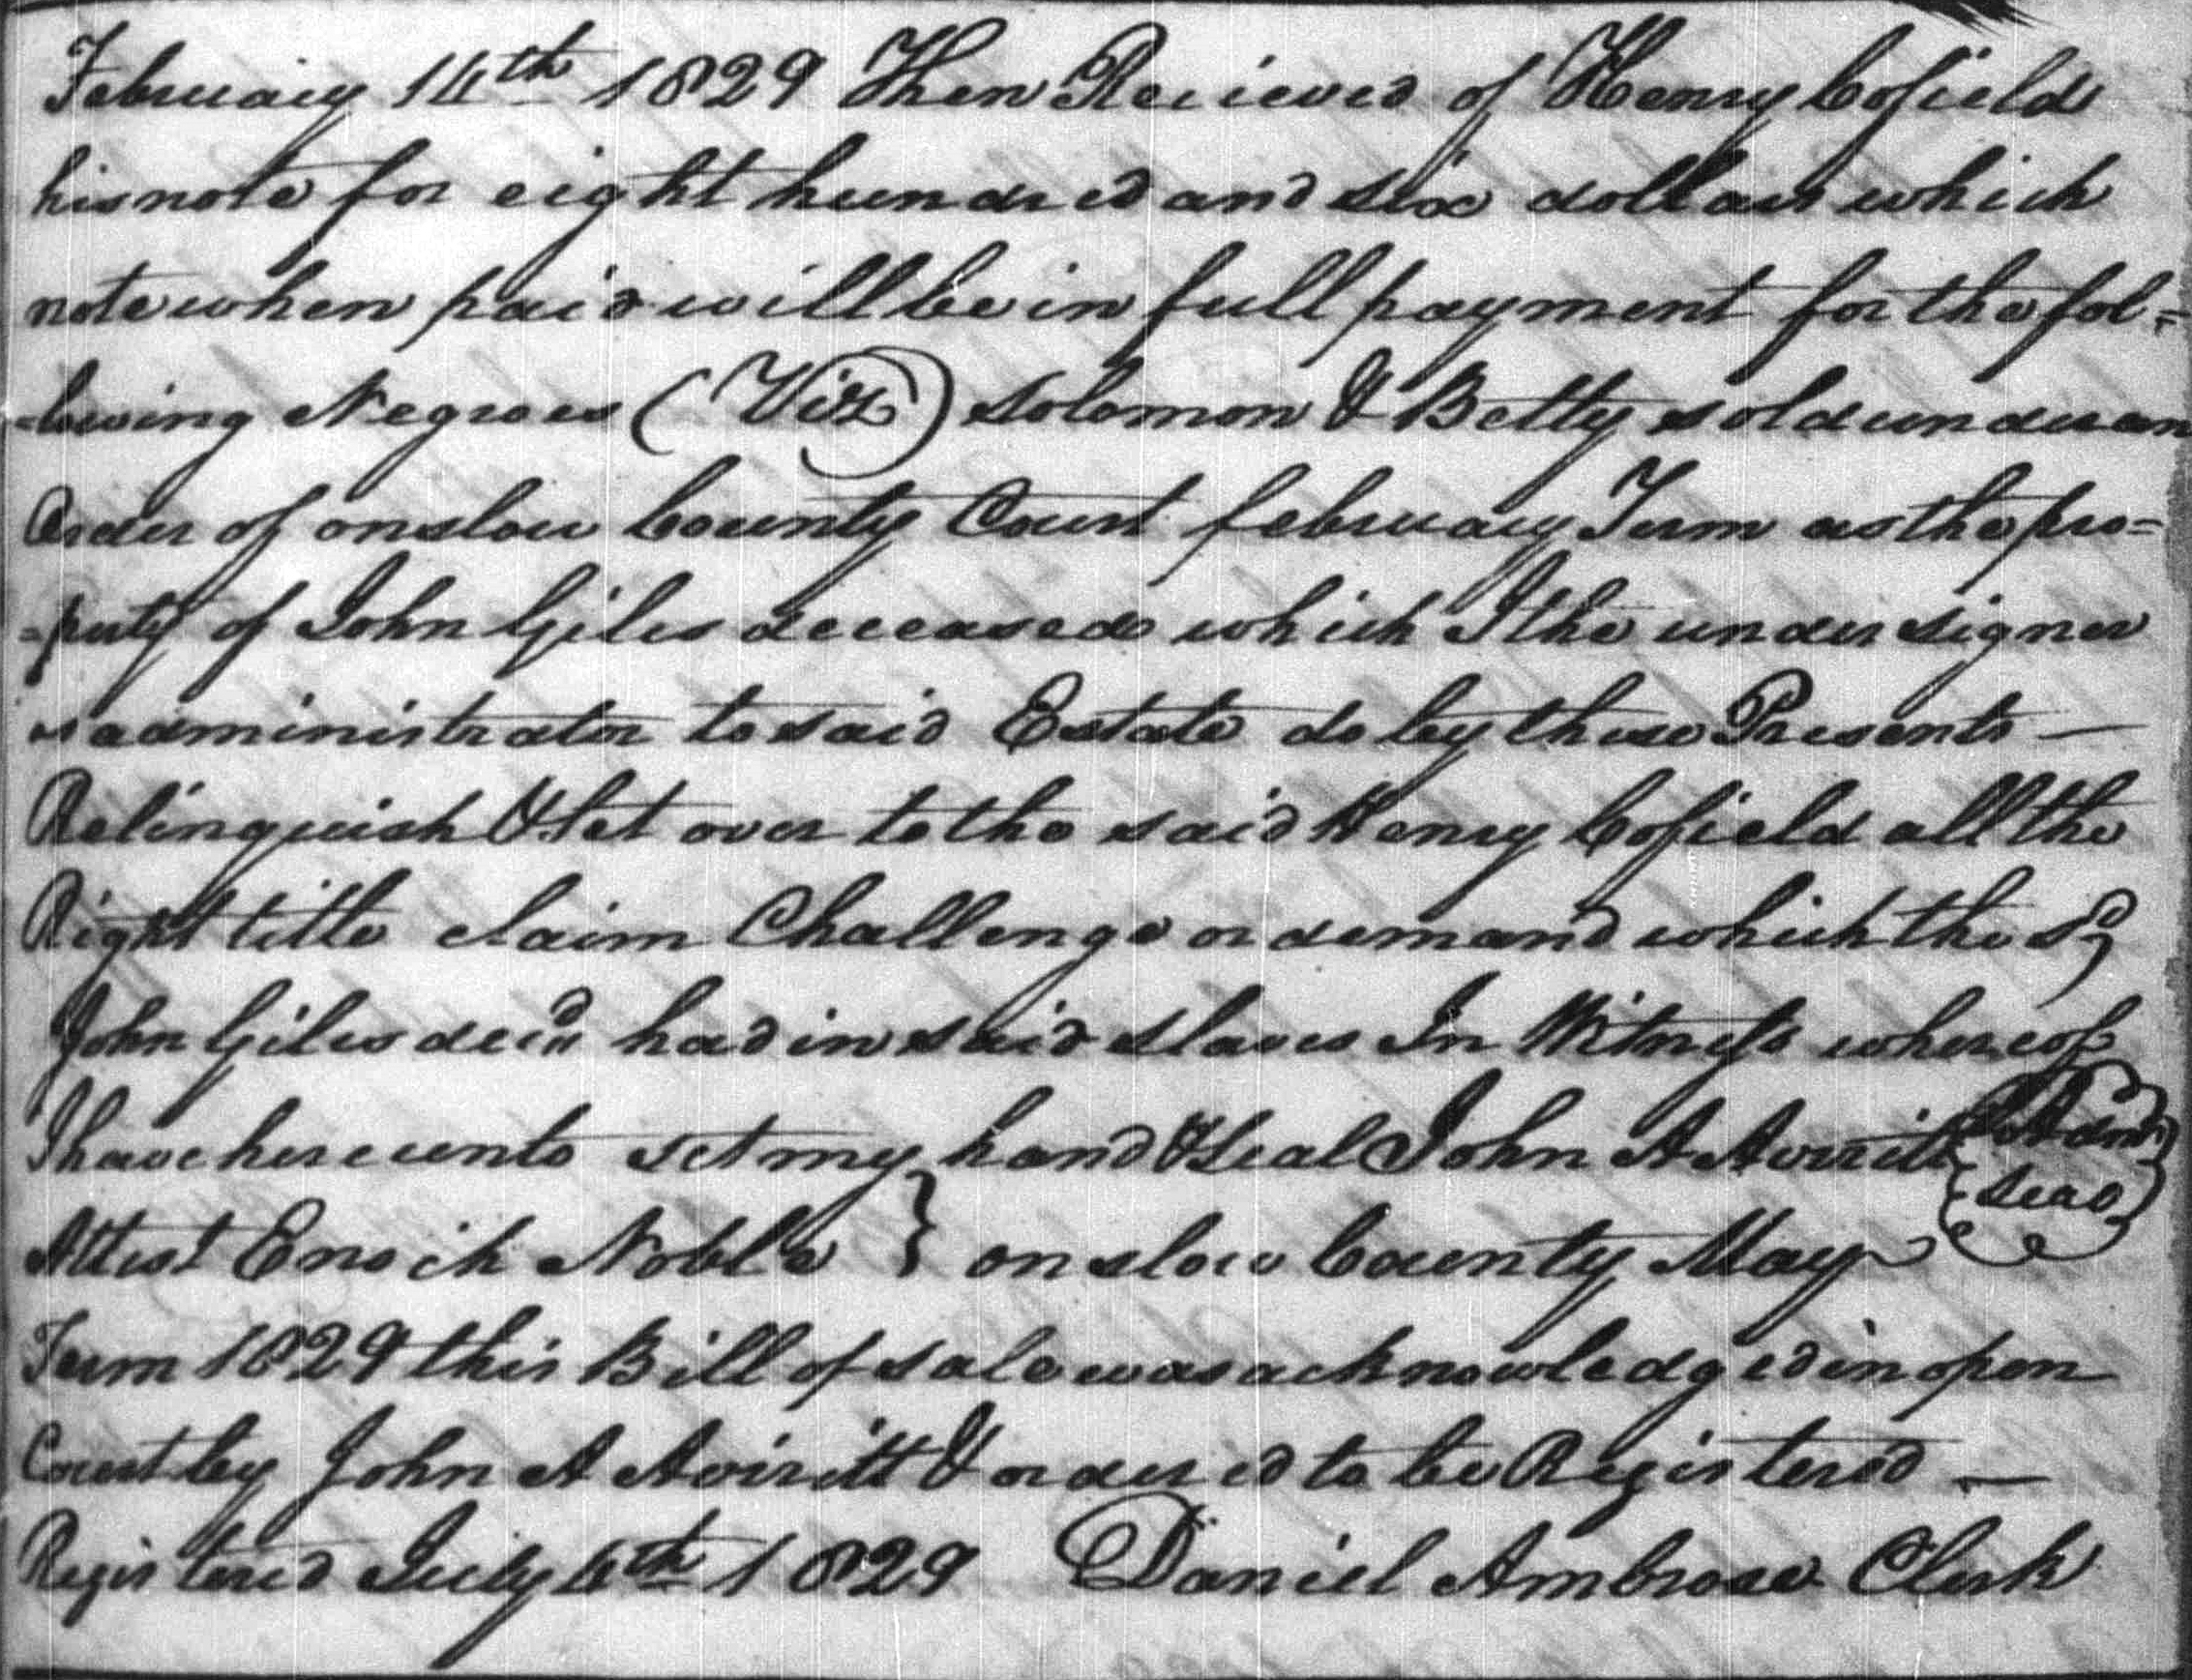 February 14th 1829 Then Recieved of Henry Cofield
his note for eight hundred and six dollars which
note when paid will be in full payment for the fol=
=lowing Negroes (Viz) Solomon & Betty sold under an
Order of onslow County Court february Term as the pro=
=perty of John Giles deceased which I the undersigner
as administrator to said Estate do by these Presents —
Relinquish & set over to the said Henry Cofield all the
Right title claim Challenge or demand which the sd
John Giles decd had in said slaves In Witness whereof
I have hereunto set my hand & Seal John A Averitt Adm
seal
Attest Enoch Noble } onslow County May
Term 1829 this Bill of sale was acknowledged in open
Court by John A Aviritt & ordered to be Registered —
Registered July 4th 1829 Daniel Ambrose Clerk